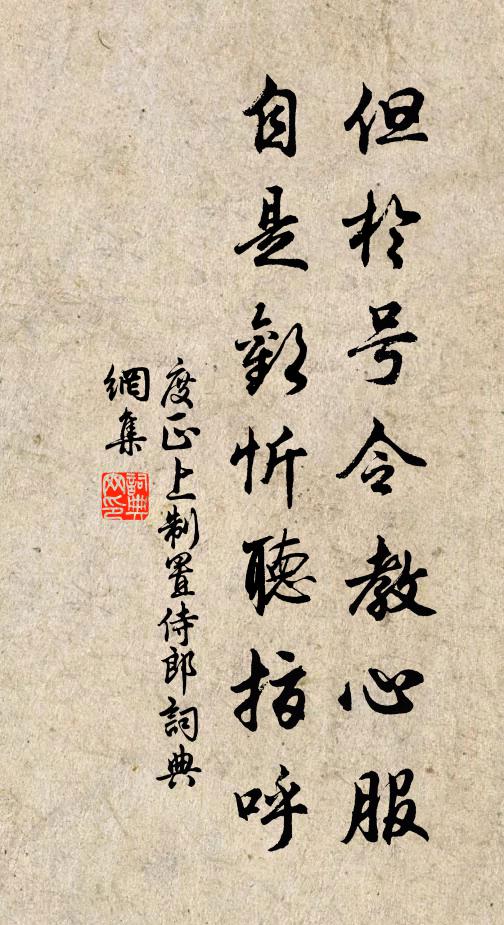 但於号令教心服
自是歡忻聽指呼
度正上制置侍郎詞典
網集
詞典
网印